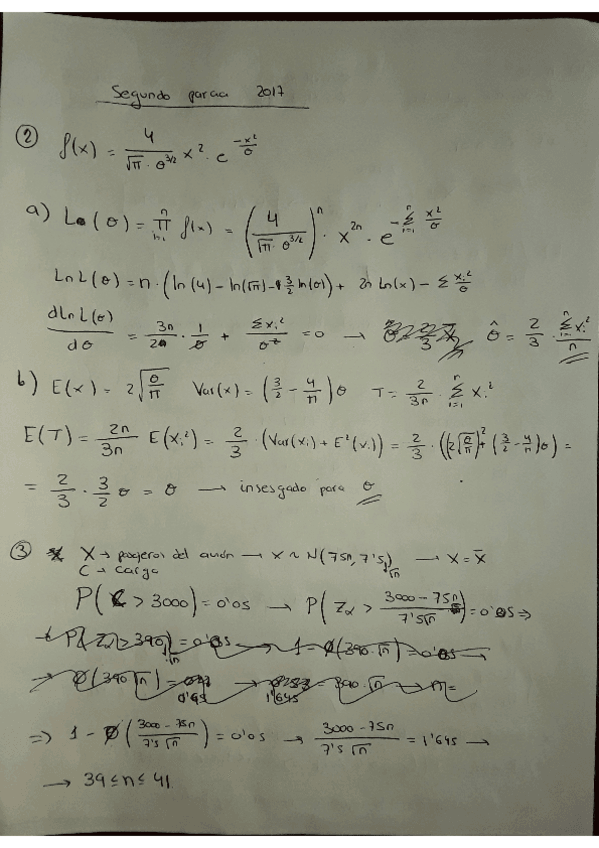 Segundo parcial 2017
② f(x) = 4/(√π · θ^(3/2)) x² · e^(-x²/θ)
a) L(θ) = ∏_{i=1}^{n} f(xi) = (4/(√π · θ^(3/2)))^n · x^(2n) · e^(-Σ_{i=1}^{n} x²/θ)
Ln L(θ) = n · (ln(4) - ln(√π) - 3/2 ln(θ)) + 2n Ln(x) - Σ xi²/θ
dLn L(θ)/dθ = 3n/2 · 1/θ + Σxi²/θ² = 0 → θ̂ = 2/3 · Σ_{i=1}^{n} xi²/n
b) E(x) = 2√(θ/π) Var(x) = (3/2 - 4/π)θ T = 2/3n · Σ_{i=1}^{n} xi²
E(T) = 2n/3n E(xi²) = 2/3 · (Var(xi) + E²(xi)) = 2/3 · ((2√(θ/π))² + (3/2 - 4/π)θ) =
= 2/3 · 3/2 θ = θ → insesgado para θ
③ X → pasajeros del avión → x ~ N(75n, 7'5√n) → X = X̄
C → carga
P(C > 3000) = 0'05 → P(Zα > (3000 - 75n)/(7'5√n)) = 0'05 ⇒
⇒ 1 - Ø((3000 - 75n)/(7'5√n)) = 0'05 → (3000 - 75n)/(7'5√n) = 1'645 →
→ 39 ≤ n ≤ 41